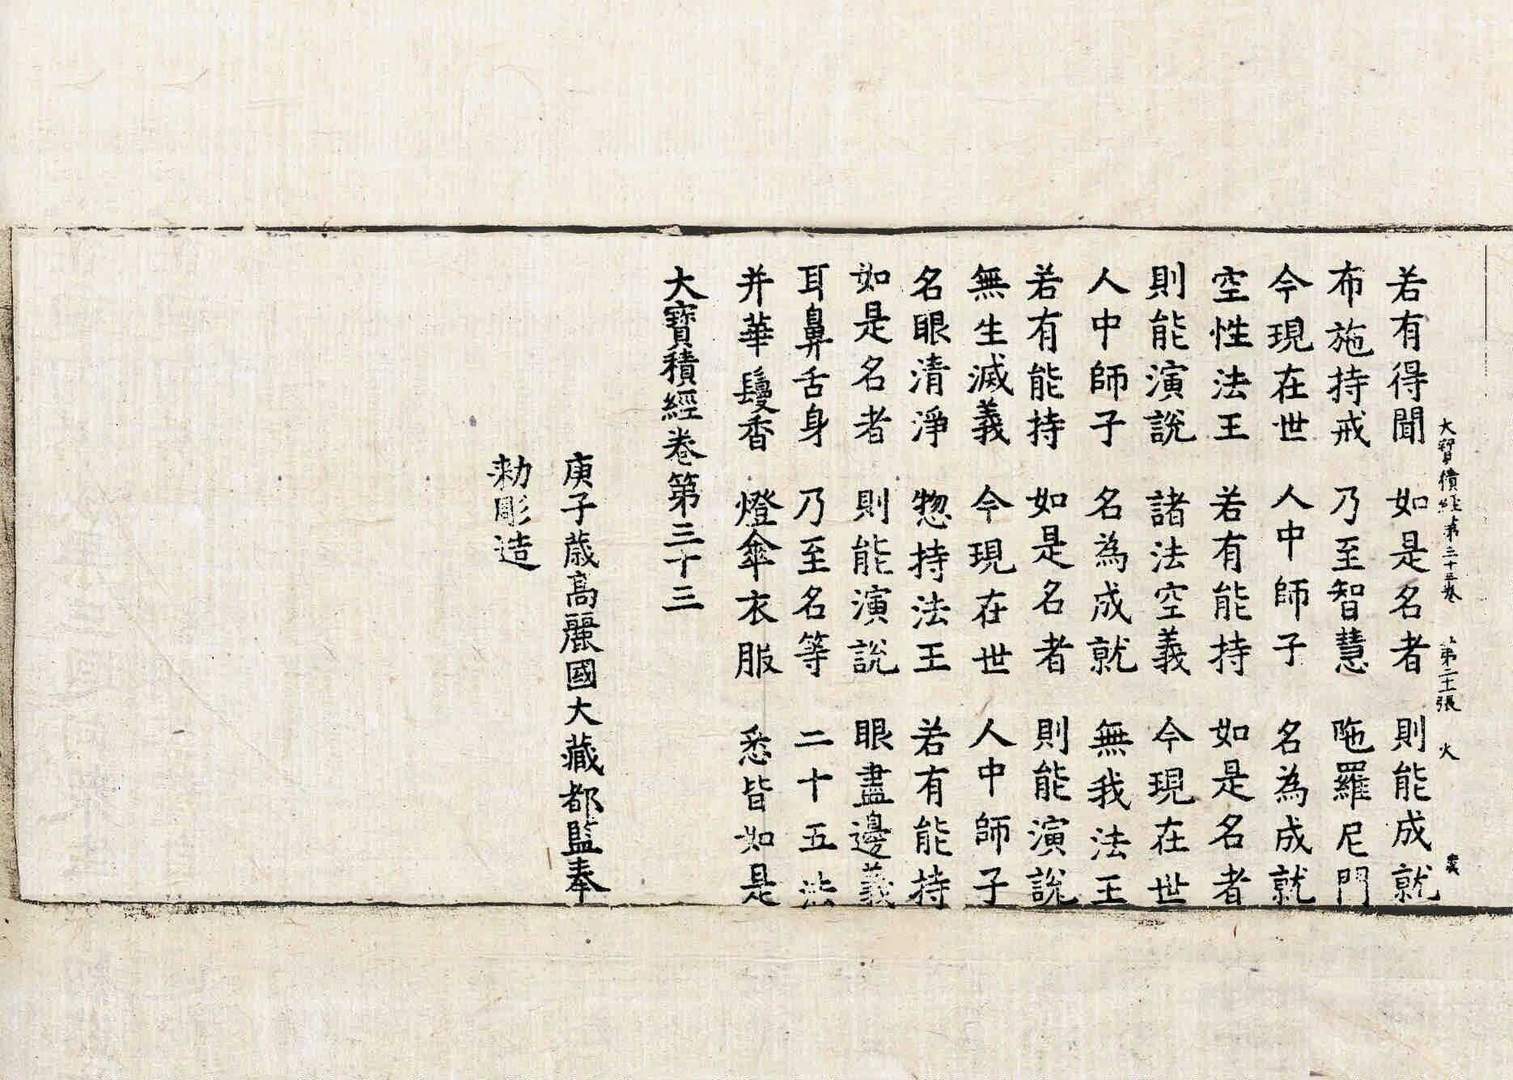 大寶積經第三十三卷　第二十張　火
若有得聞　如是名者　則能成就
布施持戒　乃至智慧　陁羅尼門
今現在世　人中師子　名為成就
空性法王　若有能持　如是名者
則能演說　諸法空義　今現在世
人中師子　名為成就　無我法王
若有能持　如是名者　則能演說
無生滅義　今現在世　人中師子
名眼清淨　惣持法王　若有能持
如是名者　則能演說　眼盡邊義
耳鼻舌身　乃至名等　二十五法
并華鬘香　燈傘衣服　悉皆如是
大寶積經卷第三十三
庚子歲高麗國大藏都監奉
勑彫造